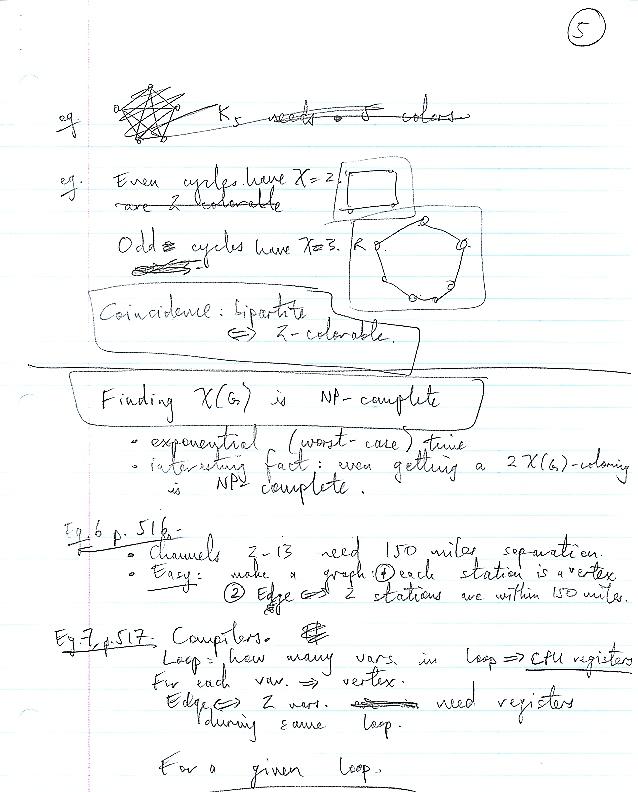 5
eg K5 needs 5 colors
eg. Even cycles have χ = 2.
are 2 colorable
Odd cycles have χ=3. R
Coincidence: bipartite
⇔ 2-colorable.
Finding χ(G) is NP-complete
• exponential (worst-case) time
• interesting fact: even getting a 2χ(G)-coloring
is NP-complete.
Eg.6 p. 516.
• Channels 2-13 need 150 miles separation.
• Easy: make a graph: ① each station is a vertex
② Edge ⇔ 2 stations are within 150 miles.
Eg.7, p.517. Compilers.
Loop: how many vars. in loop ⇒ CPU registers
For each var. ⇒ vertex.
Edge ⇔ 2 vars. need registers
during same loop.
For a given loop.